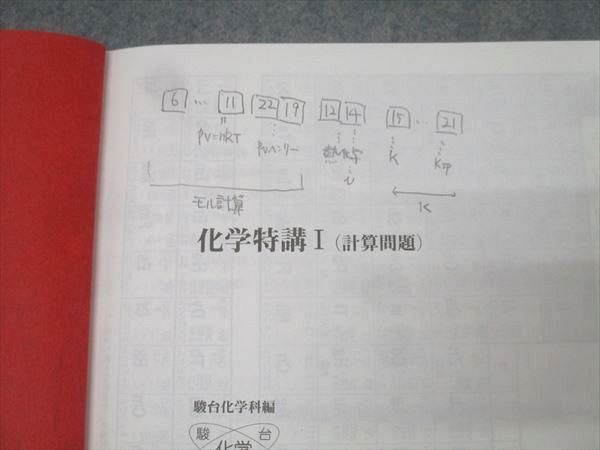 6 … 11 22 19 12 14 15 … 21
PV=nRT PVヘンリー 熱化学 K Ksp
i
モル計算 K
化学特講Ⅰ(計算問題)
駿台化学科編
駿 台
化学